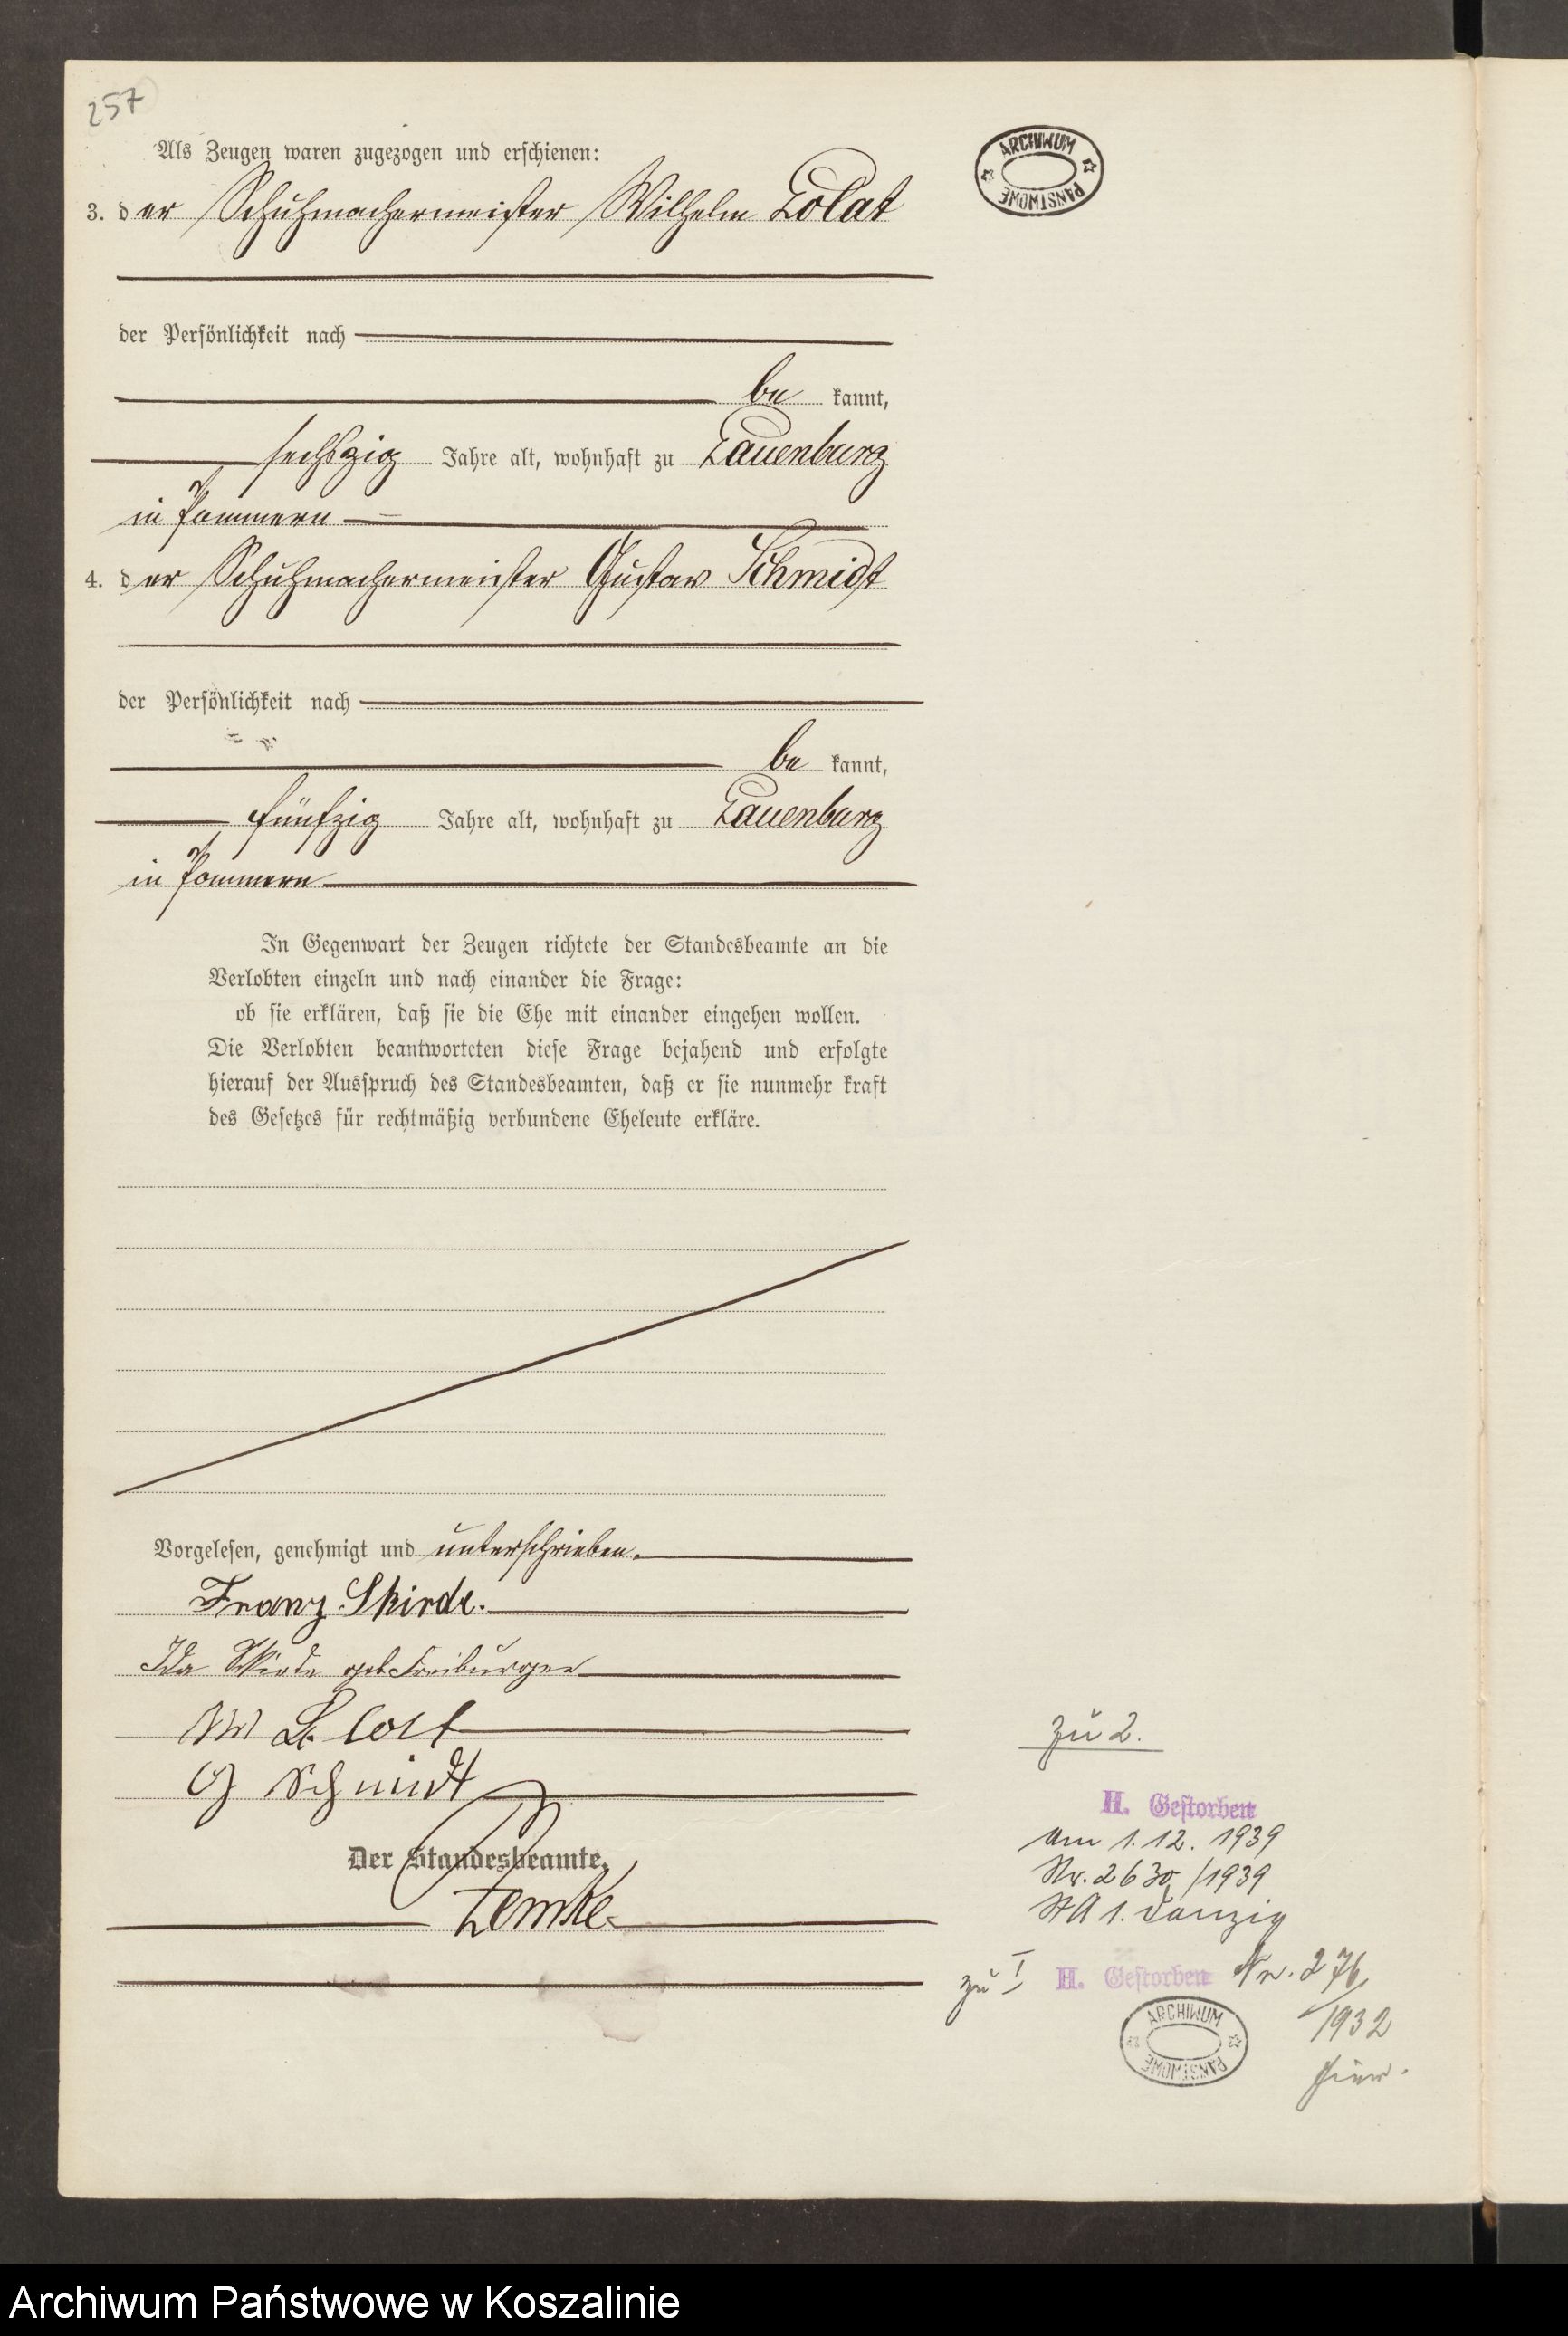 257
Als Zeugen waren zugezogen und erschienen:
3. der Schuhmachermeister Wilhelm Lolat
der Persönlichkeit nach
be kannt,
sechszig Jahre alt, wohnhaft zu Lauenburg
in Pommern
4. der Schuhmachermeister Gustav Schmidt
der Persönlichkeit nach
be kannt,
fünfzig Jahre alt, wohnhaft zu Lauenburg
in Pommern
In Gegenwart der Zeugen richtete der Standesbeamte an die
Verlobten einzeln und nach einander die Frage:
ob sie erklären, daß sie die Ehe mit einander eingehen wollen.
Die Verlobten beantworteten diese Frage bejahend und erfolgte
hierauf der Ausspruch des Standesbeamten, daß er sie nunmehr kraft
des Gesetzes für rechtmäßig verbundene Eheleute erkläre.
Vorgelesen, genehmigt und unterschrieben.
Franz Skirde.
Ida Skirde geb Freiburger
G Schmidt
Der Standesbeamte.
Lemke
ARCHIWUM PAŃSTWOWE
zu 2.
H. Gestorben
am 1.12.1939
Nr. 2630/1939
StA 1. Danzig
zu I H. Gestorben Nr. 276
/1932
hier.
ARCHIWUM PAŃSTWOWE
Archiwum Państwowe w Koszalinie